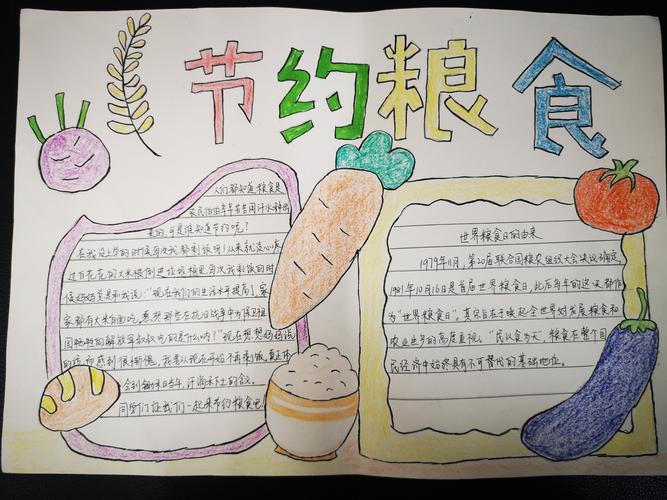 节约粮食
人们都知道粮食是
农民伯伯辛辛苦苦用汗水种出
来的,可是谁知道节约呢?
在我没上学的时候每次我都剩饭
过白花花的大米被倒进垃圾桶里,每次我剩饭的时
候妈妈总是和我说:“现在我们的生活水平提高了,家
家都有大米白面吃,
的解放军叔叔吃的是什么吗?”现在想想妈妈说
的话却感到很惭愧,我要从现在开始不再剩饭,真正体
会到锄禾日当午,汗滴禾下土的含义。
同学们让我们一起来节约粮食吧!
世界粮食日的由来
1979年11月,第20届联合国粮农组织大会决议确定,
1981年10月16日是首届世界粮食日,此后每年的这一天都作
为“世界粮食日”,其宗旨在于唤起全世界对发展粮食和
农业生产的高度重视。“民以食为天”,粮食在整个国
民经济中始终具有不可替代的基础地位。